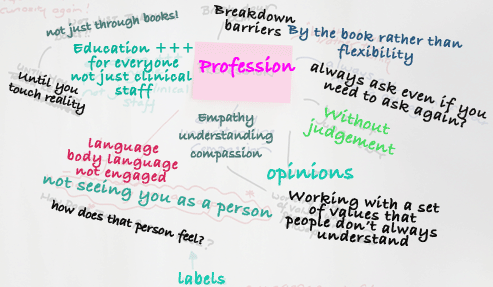 not just through books!
Breakdown
barriers
By the book rather than
flexibility
Education +++
for everyone
not just clinical
staff
Profession
always ask even if you
need to ask again?
Until you
touch reality
Without
judgement
Empathy
understanding
compassion
language
body language
not engaged
opinions
not seeing you as a person
Working with a set
of values that
people don't always
understand
how does that person feel?
labels